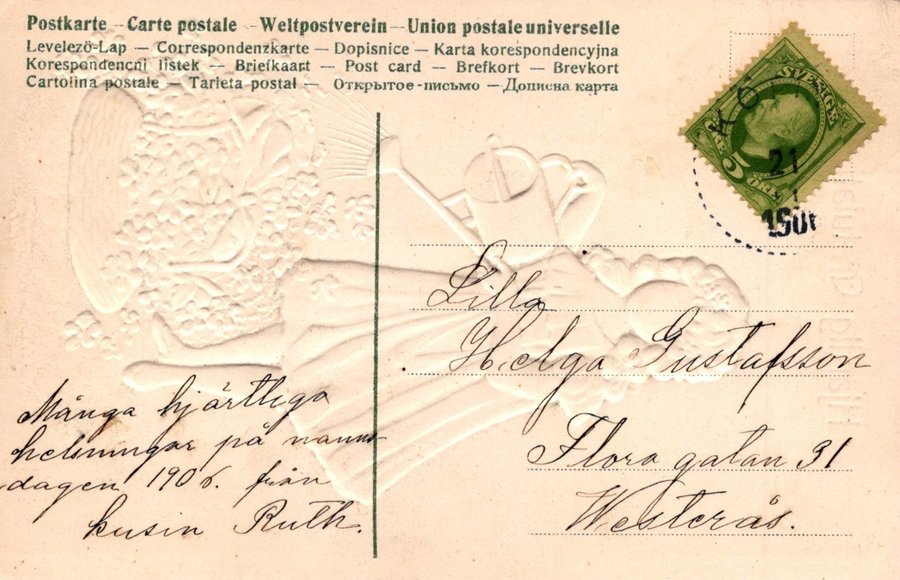 Postkarte – Carte postale – Weltpostverein – Union postale universelle
Levelező-Lap — Correspondenzkarte — Dopisnice — Karta korespondencyjna
Korespondencni listek — Briefkaart — Post card — Brefkort — Brevkort
Cartolina postale — Tarjeta postal — Открытое-письмо — Дописна карта
SVERIGE
5 ÖRE
21
Lilla
Helga Gustafsson
Flora gatan 31
Westerås.
Många hjärtliga
helsningar på namns-
dagen 1906. från
kusin Ruth.